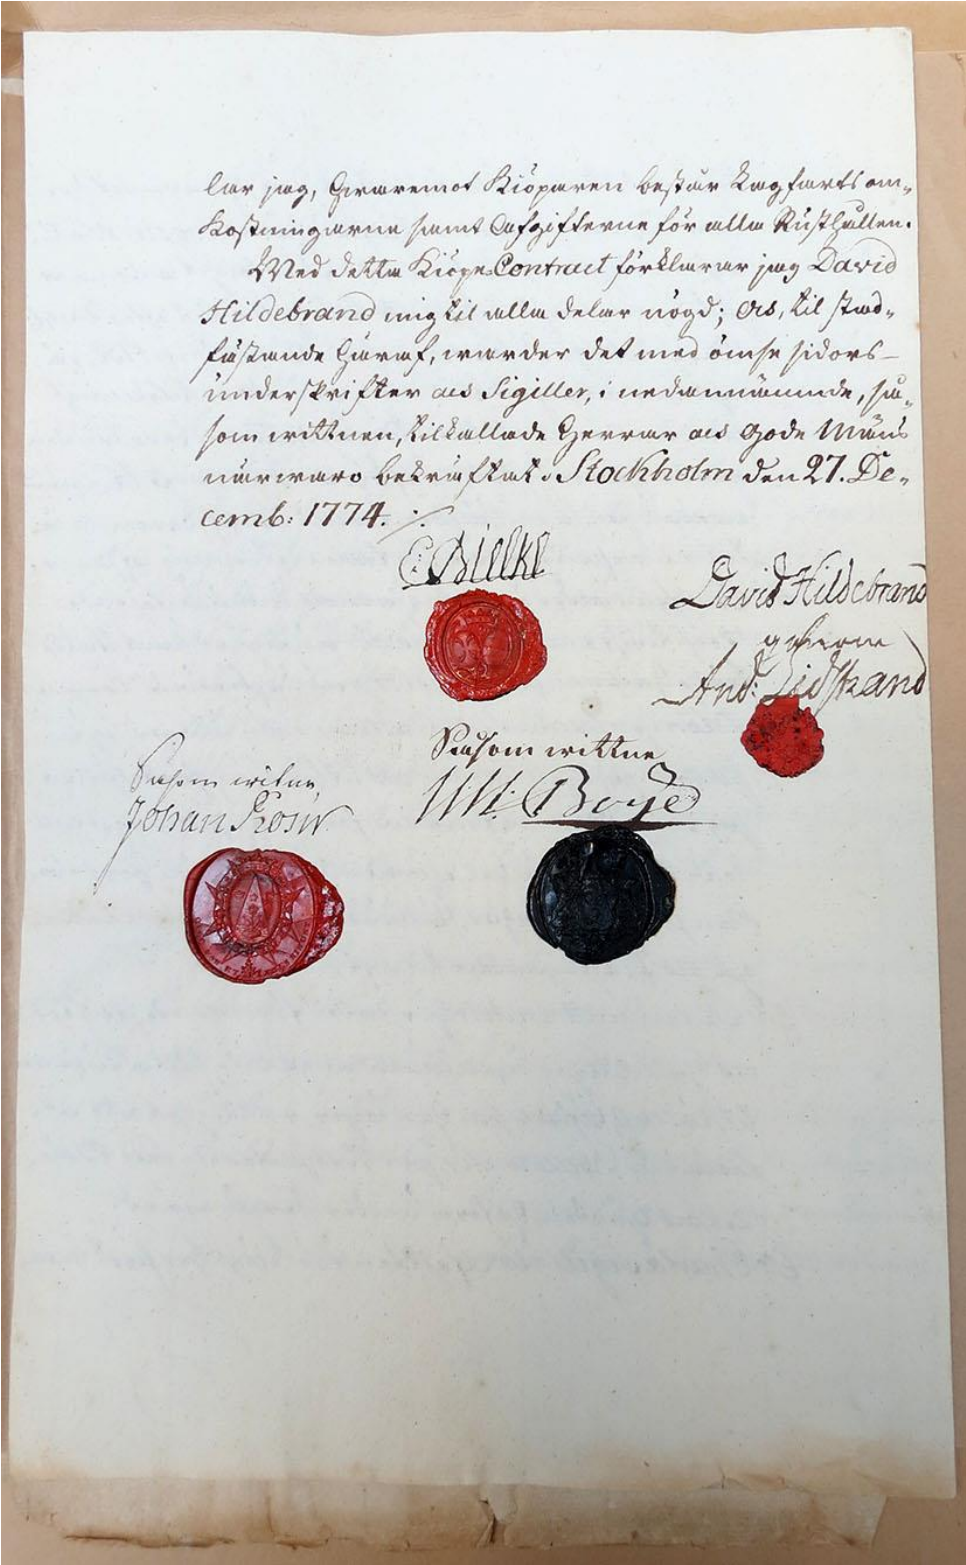 lar jag, hwaremot Kiöparen består Lagfarts om-
kostningarne samt Afgifterne för alla Rusthållen.
Med detta Kiöpe Contract förklarar jag David
Hildebrand mig til alla delar nögd; Och, til stad-
fästande häraf, warder det med ömse sidors
underskrifter och Sigiller, i nedannämnde, så-
som wittnen, tilkallade Herrar och gode Mäns
närwaro bekräftat. Stockholm den 27. De-
cemb: 1774. ./.
E: Bielke
David Hildebrand
genom
And: Lidstrand
Såsom wittne
Såsom witne,
Boije
Johan